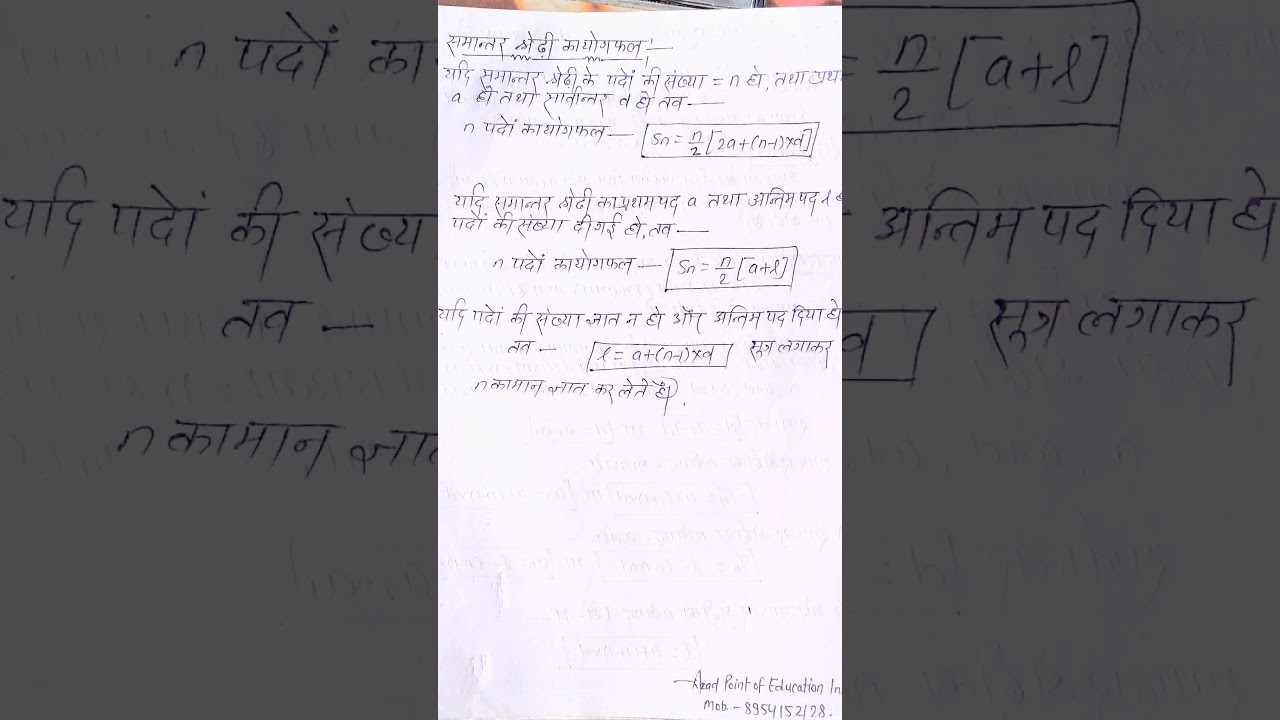 समान्तर श्रेढ़ी का योगफल —
यदि समान्तर श्रेढ़ी के पदों की संख्या = n हो, तथा प्रथ
a हो तथा सार्वान्तर d हो तब —
n पदों का योगफल — Sn = n/2 [2a+(n-1)×d]
यदि समान्तर श्रेढ़ी का प्रथम पद a तथा अन्तिम पद l
पदों की संख्या दी गई हो, तब —
n पदों का योगफल — Sn = n/2 [a+l]
यदि पदों की संख्या ज्ञात न हो और अन्तिम पद दिया हो
तब — l = a+(n-1)×d सूत्र लगाकर
n का मान ज्ञात कर लेते हैं।
Azad Point of Education In
Mob. - 8954152128.
n पदों का
= n/2 [a+l]
यदि पदों की संख्य
अन्तिम पद दिया हो
तब —
d सूत्र लगाकर
n का मान ज्ञात